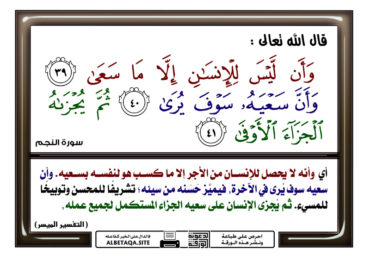 قال الله تعالى :
وَأَن لَّيْسَ لِلْإِنسَٰنِ إِلَّا مَا سَعَىٰ ٣٩
وَأَنَّ سَعْيَهُۥ سَوْفَ يُرَىٰ ٤٠ ثُمَّ يُجْزَىٰهُ
الْجَزَآءَ الْأَوْفَىٰ ٤١
سورة النجم
أي وأنه لا يحصل للإنسـان من الأجر إلا ما كسـب هو لنفسـه بسـعيه. وأن
سعيه سوف يُرى في الآخرة، فيميَّز حَسَنه من سيئه؛ تشريفًا للمحسن وتوبيخًا
للمسيء. ثم يُجزى الإنسان على سعيه الجزاء المستكمل لجميع عمله.
(التفسير الميسر)
الدال على الخير كفاعله
ALBETAQA.SITE
احرص على طباعة
ونشر هذه الورقة